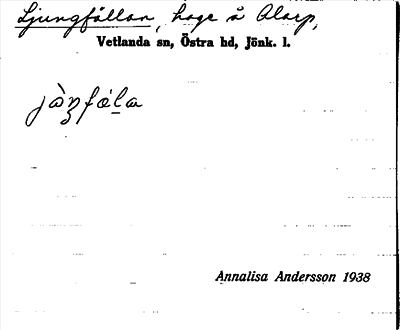 Ljungfållan, hage å Alarp,
Vetlanda sn, Östra hd, Jönk. l.
jòŋfáļa
Annalisa Andersson 1938